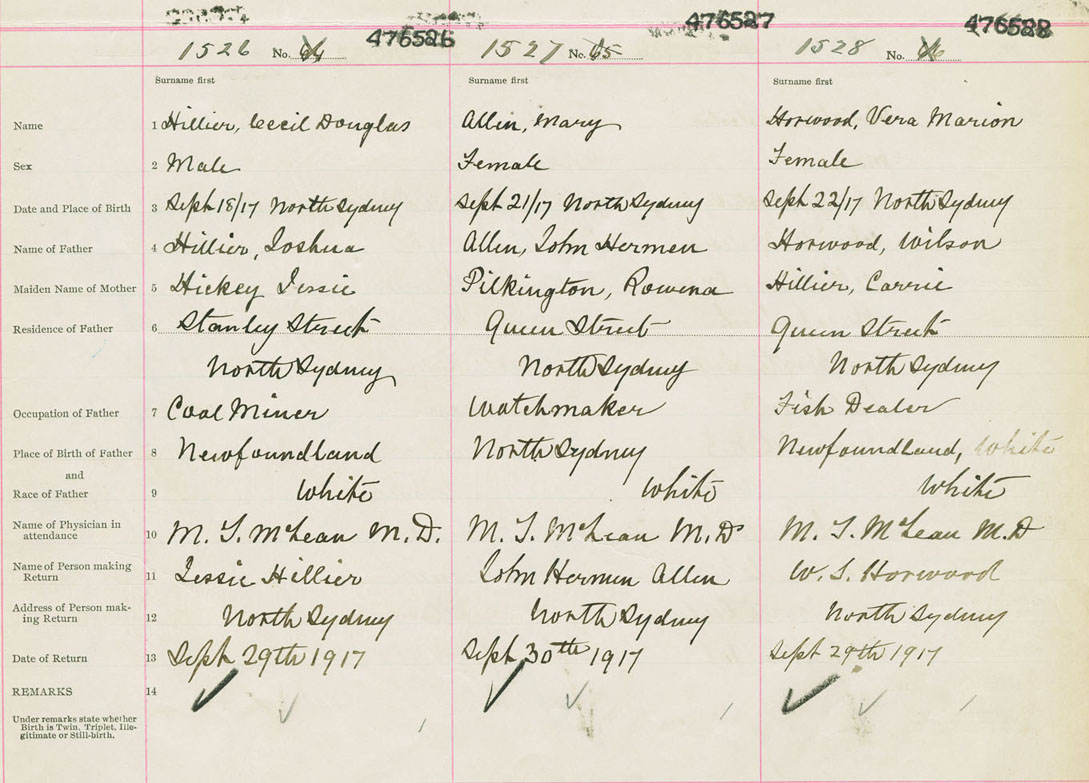 476526 476527 476528
1526 No. 64 1527 No. 65 1528 No. 66
Surname first Surname first Surname first
Name 1 Hillier, Cecil Douglas Allin, Mary Horwood, Vera Marion
Sex 2 Male Female Female
Date and Place of Birth 3 Sept 18/17 North Sydney Sept 21/17 North Sydney Sept 22/17 North Sydney
Name of Father 4 Hillier, Joshua Allen, John Hermen Horwood, Wilson
Maiden Name of Mother 5 Hickey Jessie Pilkington, Rowena Hillier, Carrie
Residence of Father 6 Stanley Street Queen Street Queen Street
North Sydney North Sydney North Sydney
Occupation of Father 7 Coal Miner Watchmaker Fish Dealer
Place of Birth of Father 8 Newfoundland North Sydney Newfoundland, White
and
Race of Father 9 White White White
Name of Physician in
attendance 10 M. T. McLean M.D. M. T. McLean M.D M. T. McLean M.D
Name of Person making
Return 11 Jessie Hillier John Hermen Allen W. S. Horwood
Address of Person mak-
ing Return 12 North Sydney North Sydney North Sydney
Date of Return 13 Sept 29th 1917 Sept 30th 1917 Sept 29th 1917
REMARKS 14
Under remarks state whether
Birth is Twin, Triplet, Ille-
gitimate or Still-birth.